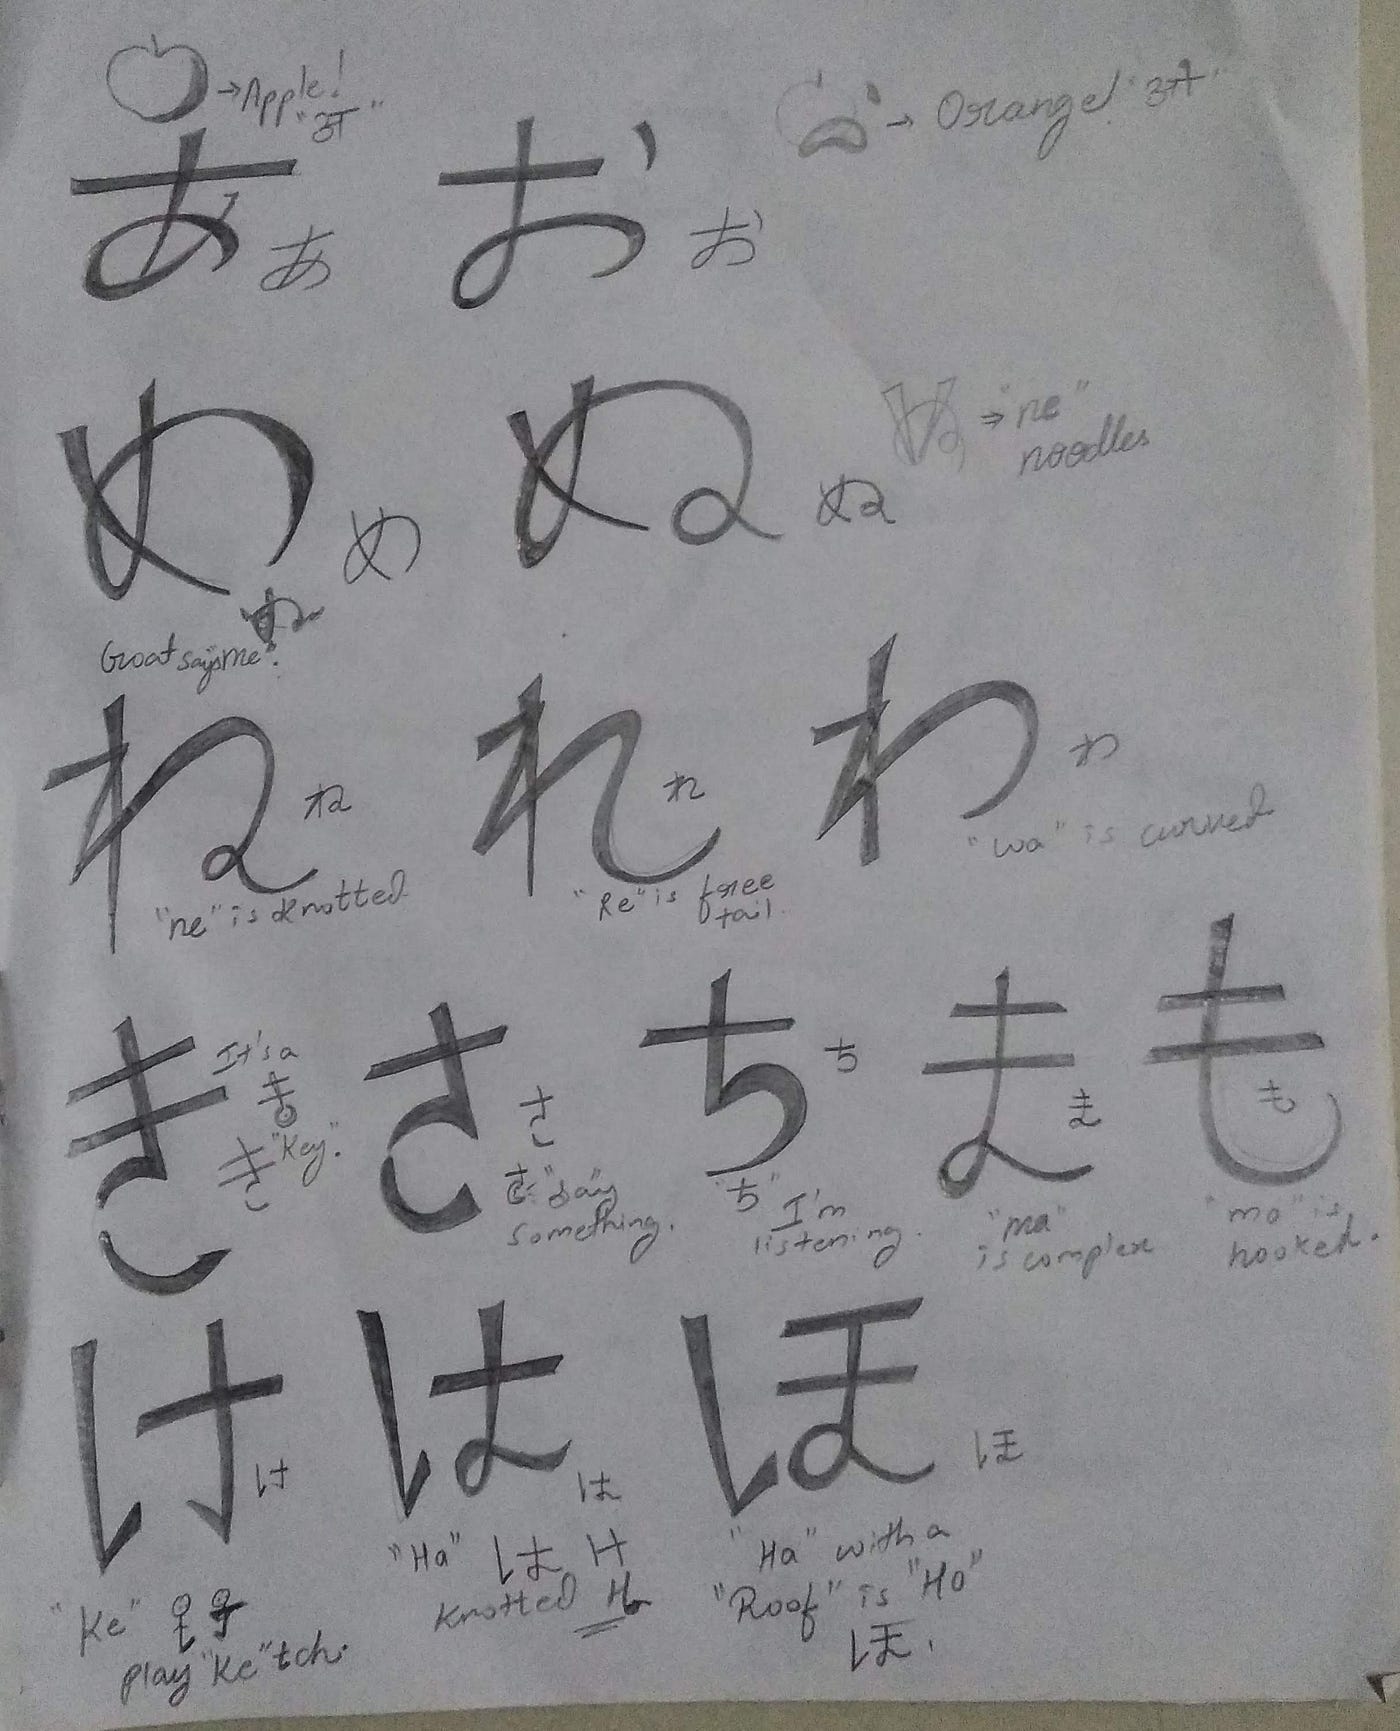 → Apple! "अ"
→ Orange! "ओ"
あ あ お お
め め ぬ ぬ
ぬ → "ne"
noodles
Goat says "me".
ね ね れ れ わ わ
"ne" is knotted
"Re" is free
tail.
"wa" is curved
き さ さ ち ち ま ま も も
It's a
き
"Key".
き
さ: "Say
something.
"ち" I'm
listening.
"ma"
is complex
"mo" is
hooked.
け け は は ほ ほ
"Ke"
play "Ke"tch.
"Ha" は け
knotted
"Ha" with a
"Roof" is "Ho"
ほ.